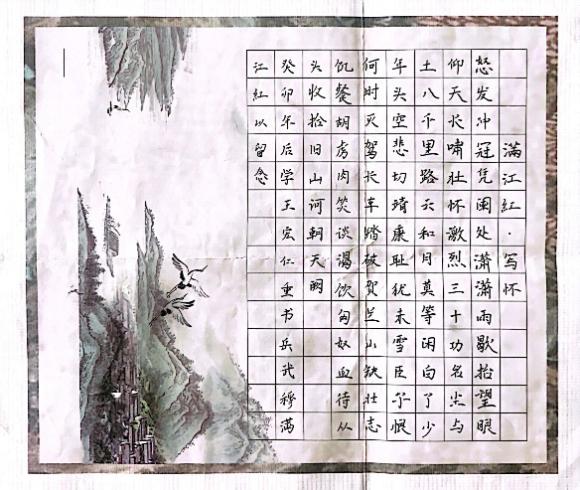 满江红·写怀
怒发冲冠凭阑处潇潇雨歇抬望眼
仰天长啸壮怀激烈三十功名尘与
土八千里路云和月莫等闲白了少
年头空悲切靖康耻犹未雪臣子恨
何时灭驾长车踏破贺兰山缺壮志
饥餐胡虏肉笑谈渴饮匈奴血待从
头收拾旧山河朝天阙
癸卯年后学王宏仁重书岳武穆满
江红以留念